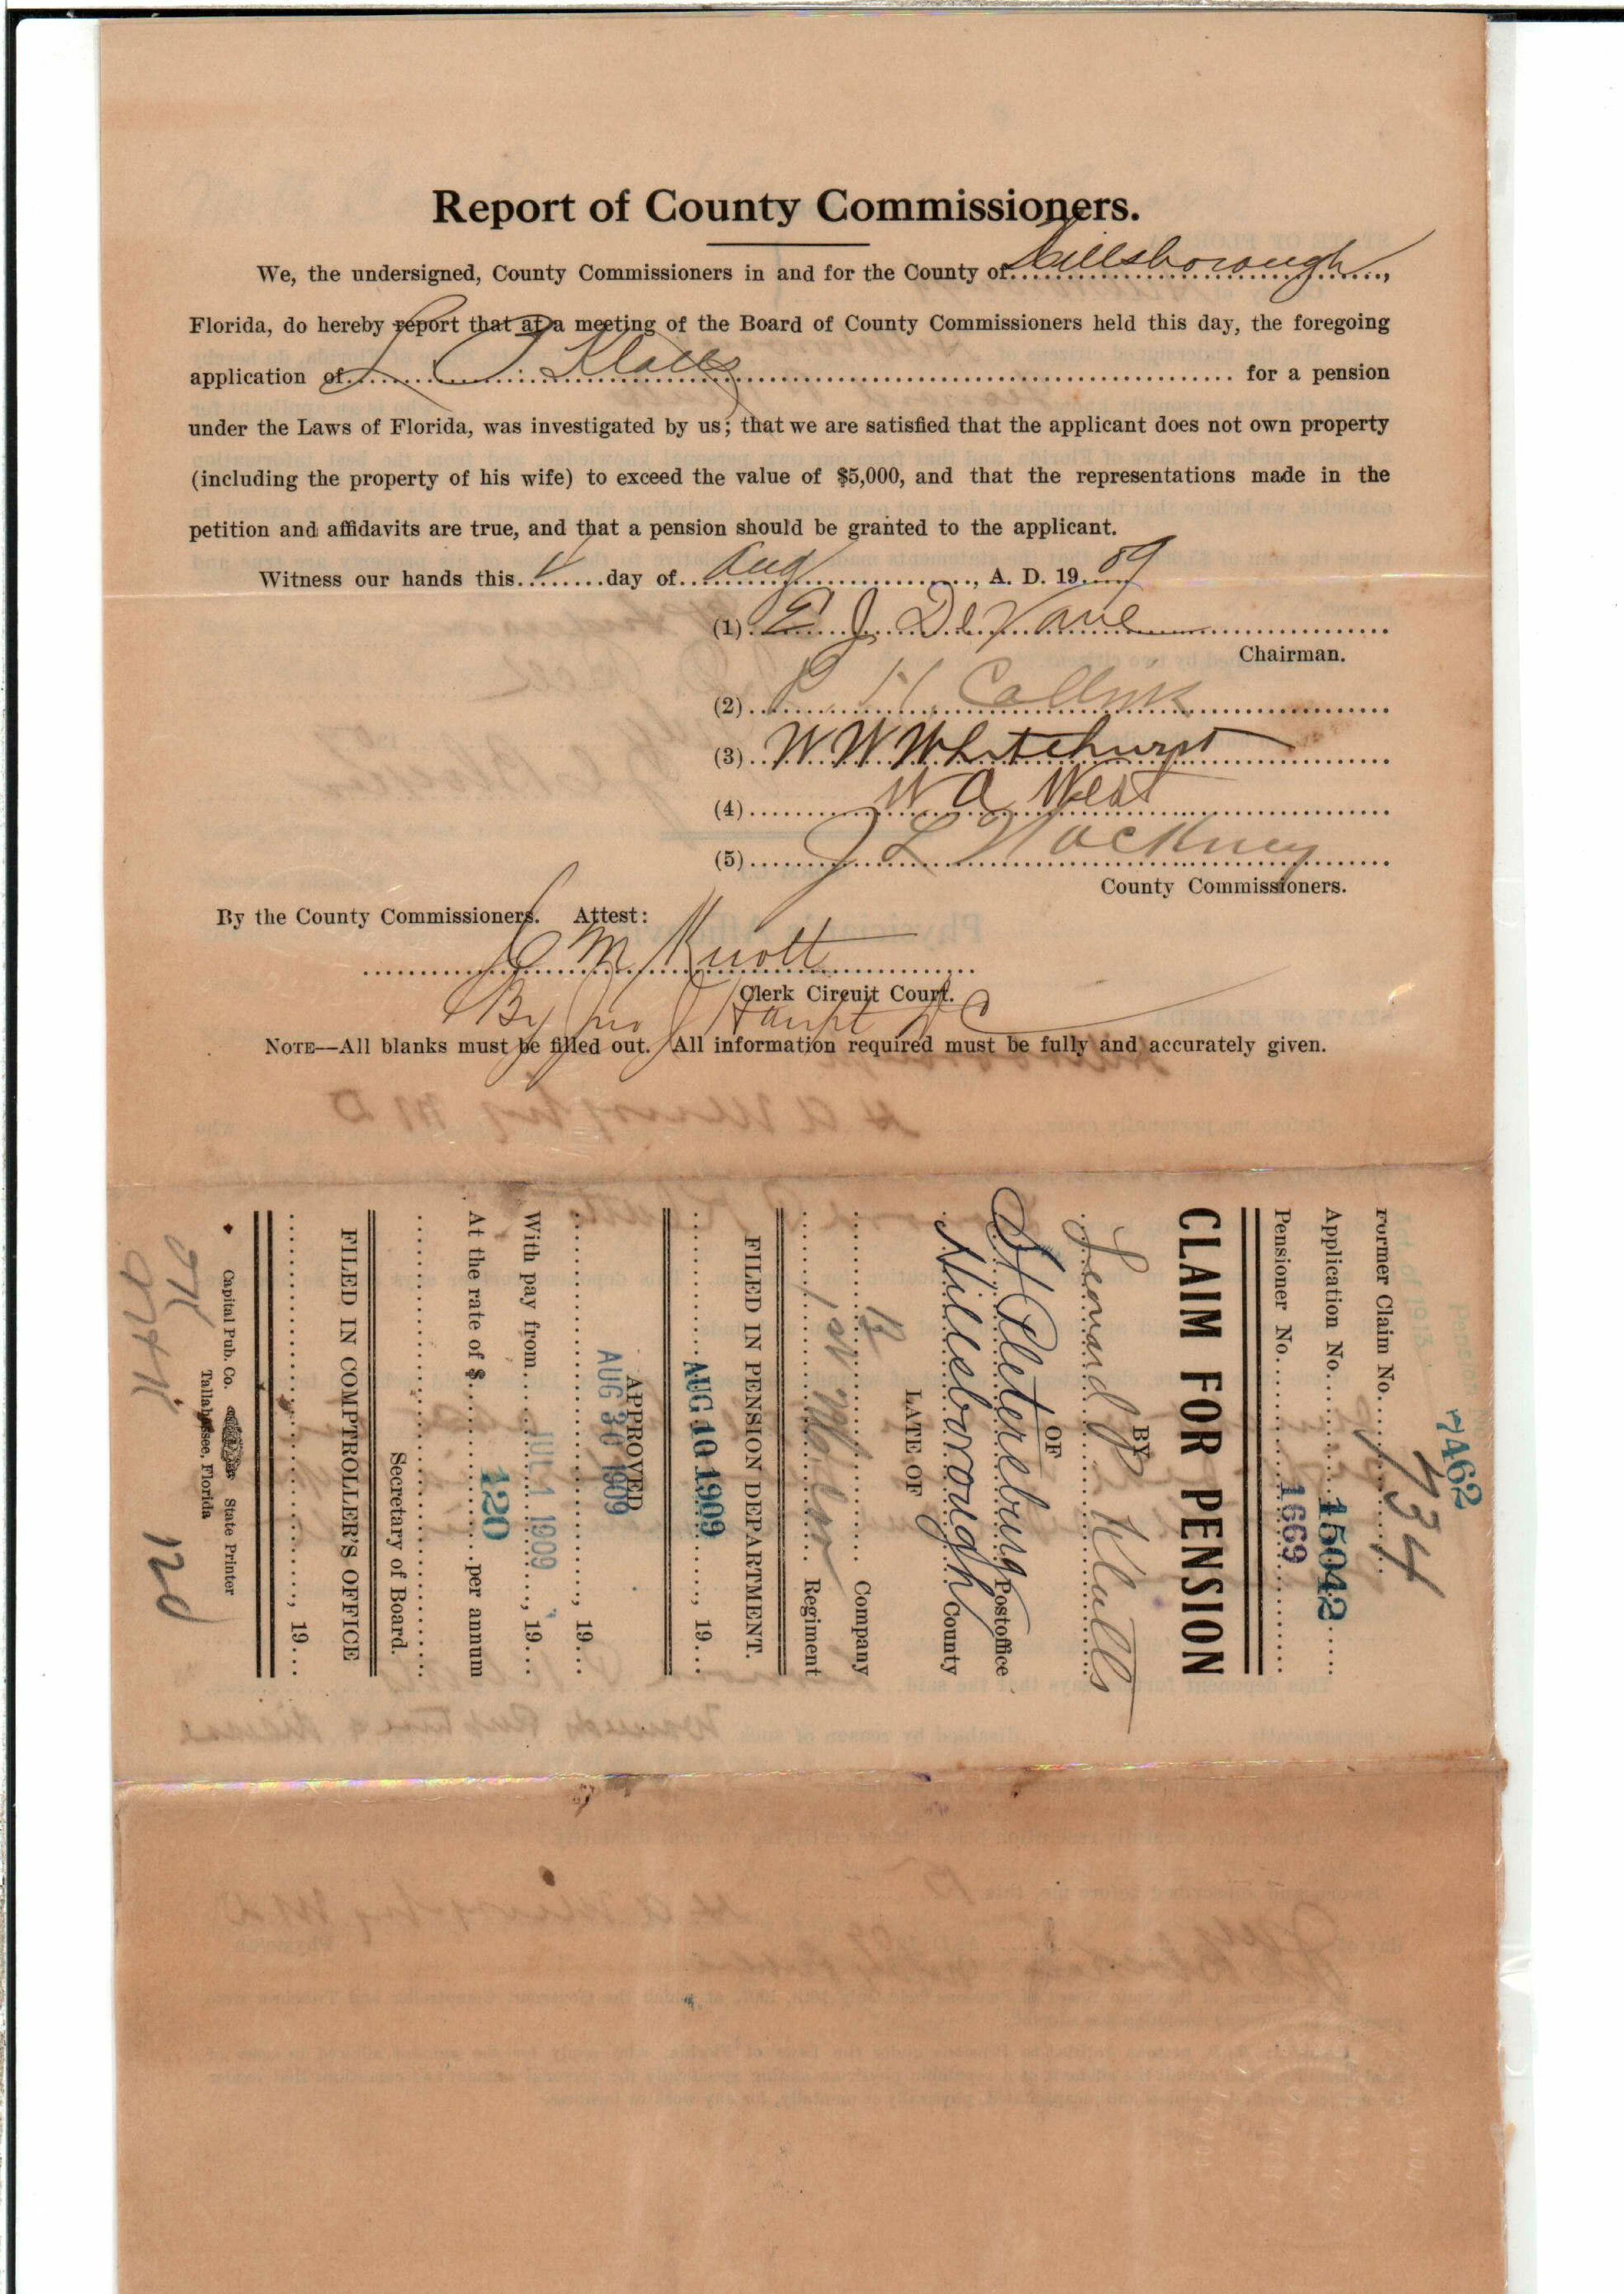 Report of County Commissioners.
We, the undersigned, County Commissioners in and for the County of Hillsborough,
Florida, do hereby report that at a meeting of the Board of County Commissioners held this day, the foregoing
application of L for a pension
under the Laws of Florida, was investigated by us; that we are satisfied that the applicant does not own property
(including the property of his wife) to exceed the value of $5,000, and that the representations made in the
petition and affidavits are true, and that a pension should be granted to the applicant.
Witness our hands this day of Aug, A. D. 1909
(1) E J DeVane
Chairman.
(2) H. Collins
(3) W W Whitehurst
(4) W A West
(5) J L Hackney
County Commissioners.
By the County Commissioners. Attest:
C M Knott
Clerk Circuit Court.
By Jno J Haupt D C
NOTE—All blanks must be filled out. All information required must be fully and accurately given.
7462
Former Claim No. 734
Application No. 15042
Pensioner No. 1669
CLAIM FOR PENSION
BY
Leonard
OF
St Petersburg Postoffice
Hillsborough County
LATE OF
Company
Regiment
FILED IN PENSION DEPARTMENT.
AUG 10 1909, 19
APPROVED
AUG 30 1909, 19
With pay from JUL 1 1909, 19
At the rate of $ 120 per annum
Secretary of Board.
FILED IN COMPTROLLER'S OFFICE
, 19
Capital Pub. Co. State Printer
Tallahassee, Florida
120